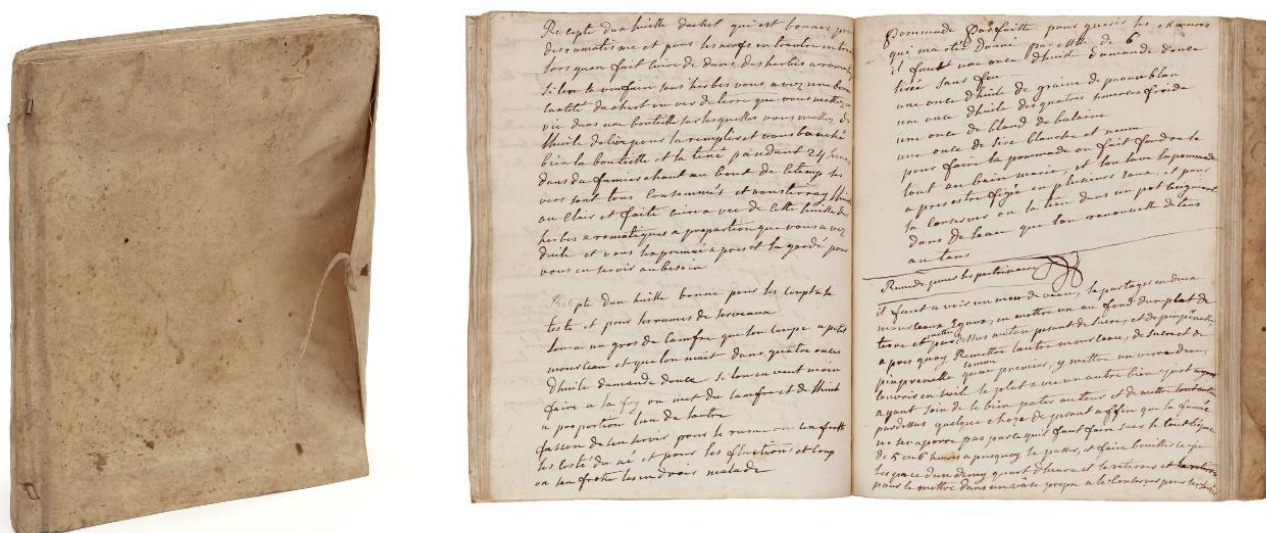 Recepte dun huille dachet qui est bonnes pour
des rumatisme et pour les nerfs
lors quon fait cuire de dans des herbes aromati
Si lon le veu sans herbes vous avez une bonne
cantité dachest ou ver de terre que vous mettez
vie dans une bouteille sur lesquelles vous mettez de
lhuile dolive pour la remplir et vous bouché
bien la bouteille et la tené pandant 24 heures
dans du fumier chaut au bout de ce temps les
vers sont tous consommés et vous tirez lhuile
au Clair et faite cuire avec de cette huille des
herbes aromatiques a proportion que vous avez
duile et vous lexprimé apres et la gardé pour
vous en servir au besoin
Recepte dun huille bonne pour les coups a la
teste et pour les rumes de serveaux
lon a un gros de camfre que lon coupe a petit
morceau et que lon mait dans quatre onces
dhuile damande douce si lon en veut moin
faire a la foy on met du camfre et de lhuile
a proportion lun de lautre
fasson de sen servir pour le rume on sen frotte
les costé du né et pour les fluctions et coup
on sen frotte les endrois malade
Pommade Parfaitte pour guerir les
qui ma esté donné par
il faut une once dhuile damande douce
tirée sans feu
une once dhuile de graine de pavau blan
une once dhuile des quatres semences froide
une once de bland de balaine
une once de sire blanche et neuve
pour faire la pommade on fait fondre le
tout au bain marie, et lon lave la pommade
apres estre figée en plusieurs eaux, et pour
la conserver on la tien dans un pot
dans de leau que lon renouvelle de tans
au tans
Remede pour les poitrinaires
il faut avoir un mou de veau, le partager en deux
morceaux Egaux, en mettre un au fond dun plat de
terre et mettre par dessus autan pesant de sucre, et de pinprenelle
apres quoy Remettre lautre morceau, de sucre et de
pinprenelle comme au premier, y mettre un verre deau,
couvrir en suite le plat avec un autre bien ajusté
ayant soin de le bien pater au tour et de mettre
par dessus quelque chose de pesant affin que la fumée
ne sen aporre pas parce quil faut faire suer le tout lespace
de 5 ou 6 heures apres quoy le passer, et faire bouillir
lespace dun demy quart dheure et le retirer
pour le mettre dans un vase propre a le conserver pour